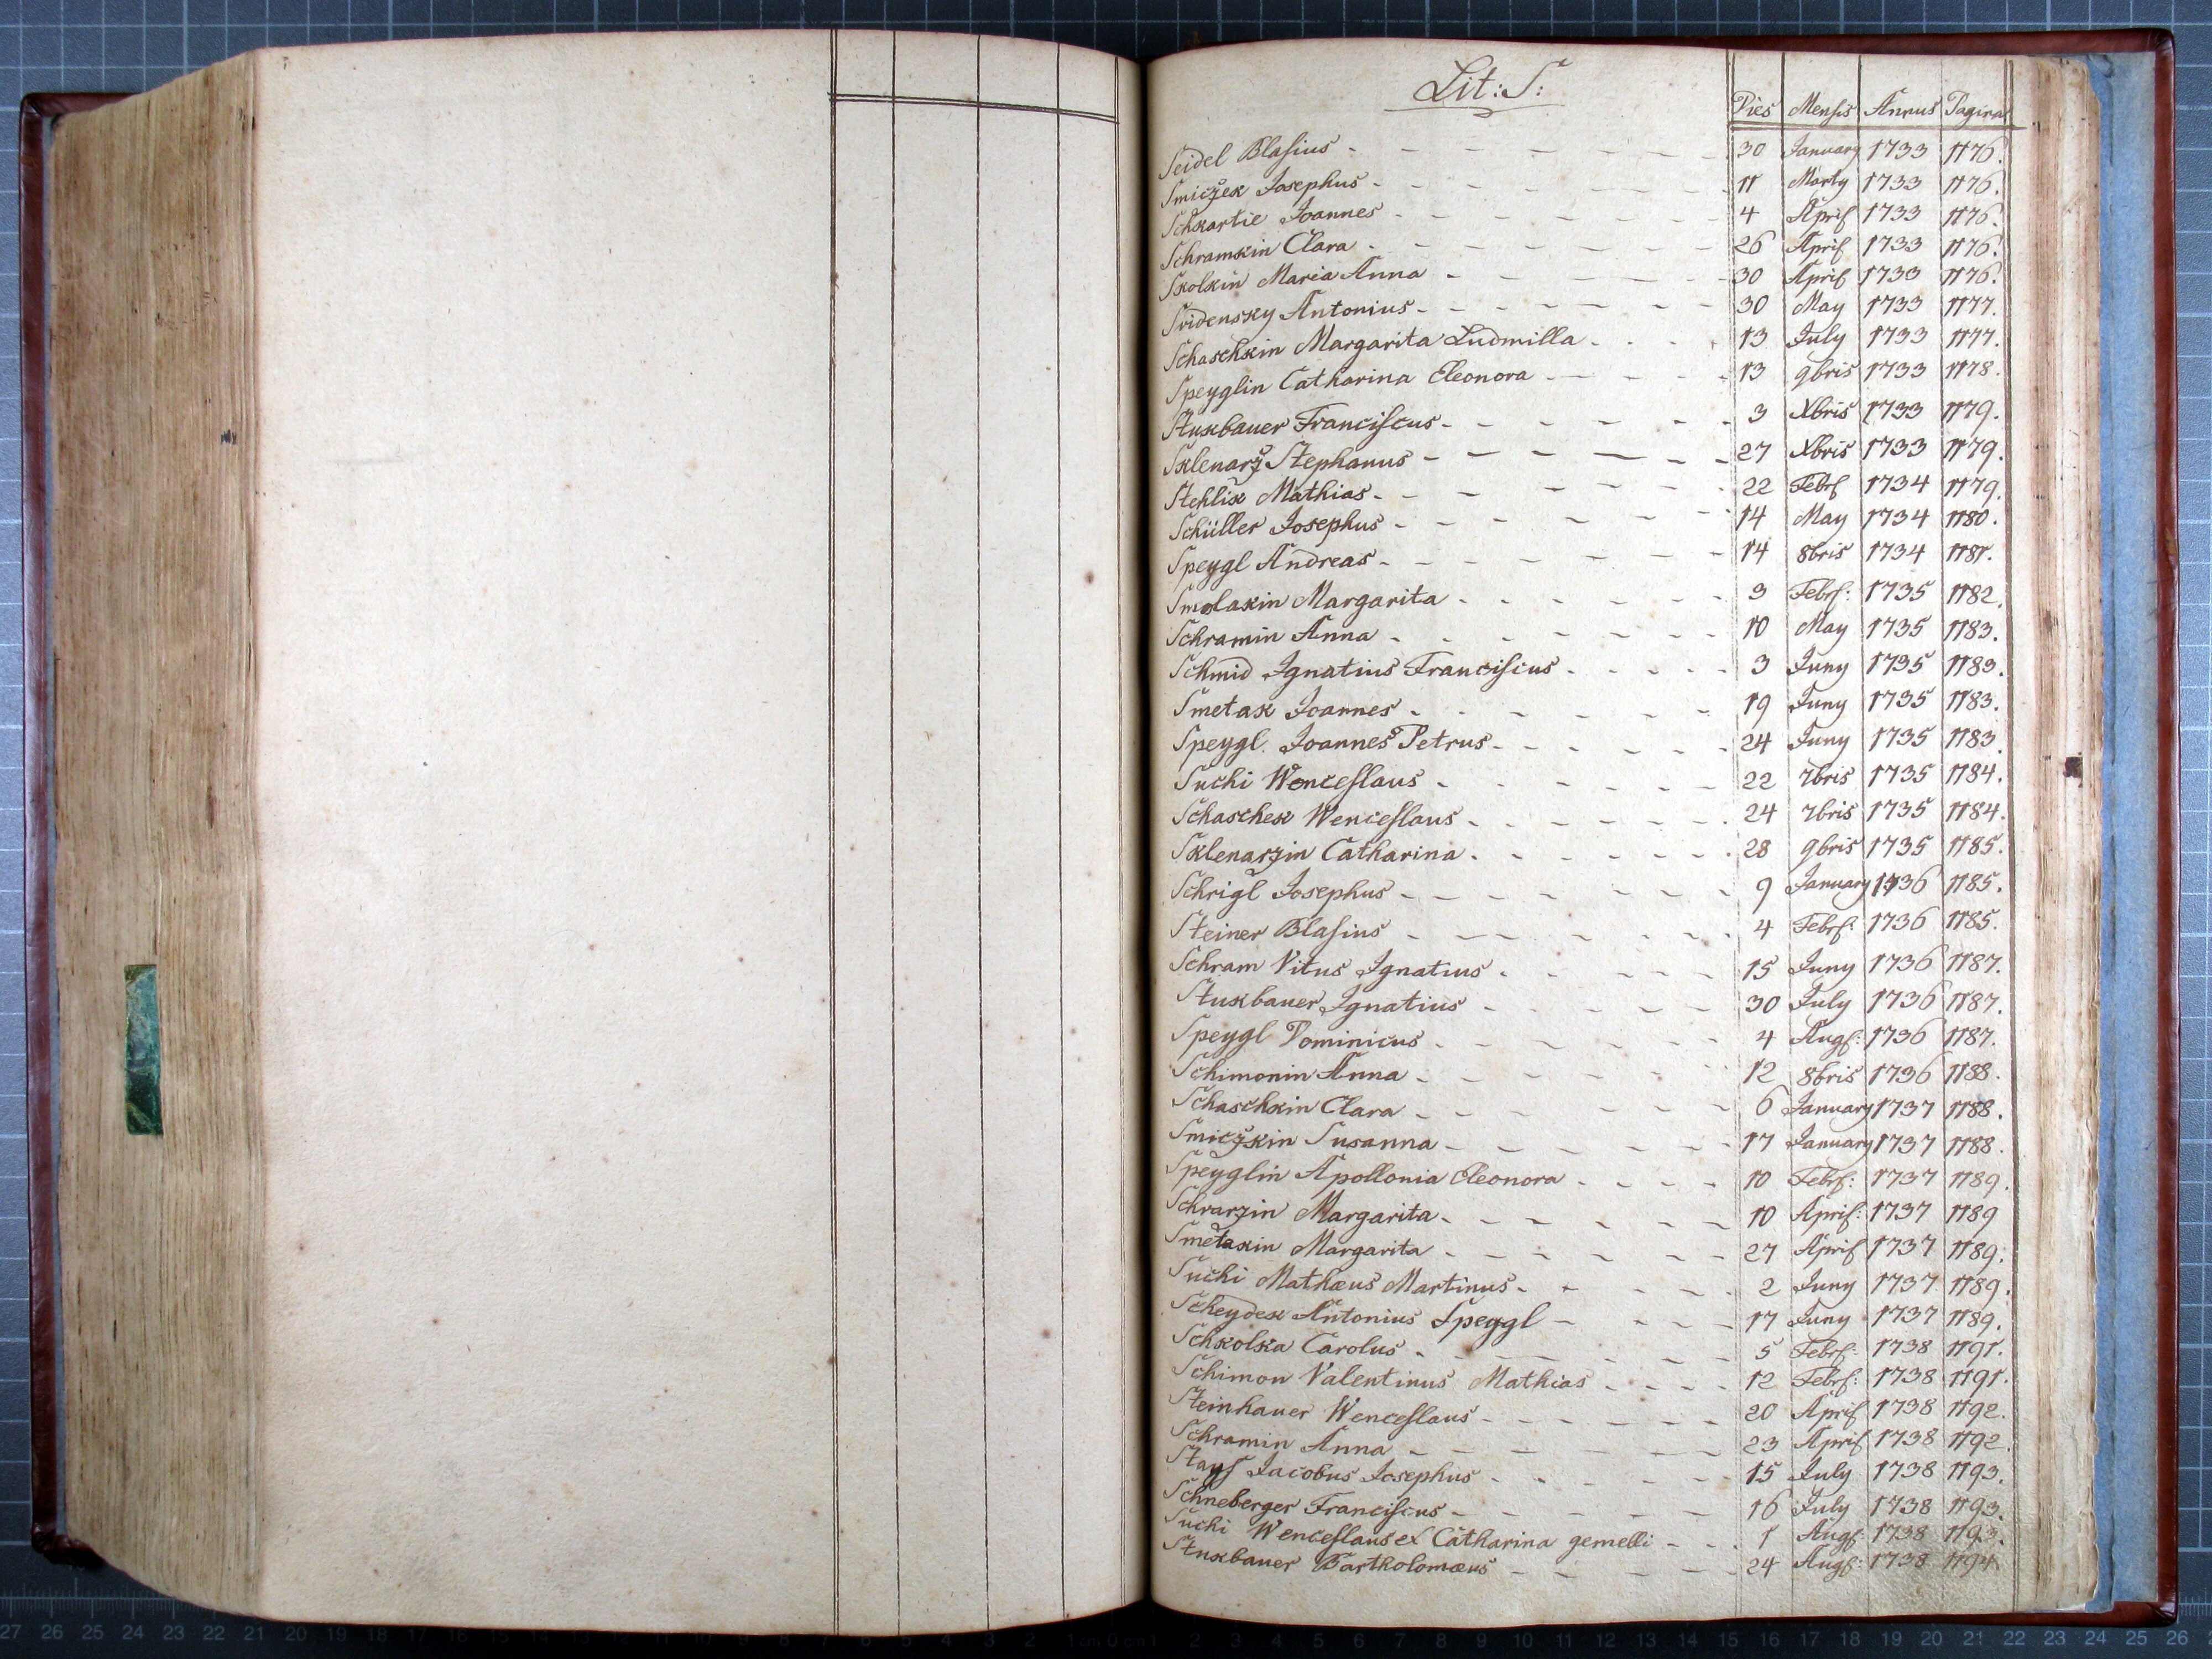 Lit: S:
Dies Mensis Annus Pagina
Seidel Blasius 30 January 1733 1176.
Smiczek Josephus 11 Marty 1733 1176.
Schkartie Joannes 4 April 1733 1176.
Schramkin Clara 26 April 1733 1176.
Skolkin Maria Anna 30 April 1733 1176.
Svidensky Antonius 30 May 1733 1177.
Schaschkin Margarita Ludmilla 13 July 1733 1177.
Speyglin Catharina Eleonora 13 9bris 1733 1178.
Stukbauer Franciscus 3 Xbris 1733 1179.
Sklenarz Stephanus 27 Xbris 1733 1179.
Stehlik Mathias 22 Febr 1734 1179.
Schüller Josephus 14 May 1734 1180.
Speygl Andreas 14 8bris 1734 1181.
Smolakin Margarita 3 Febr: 1735 1182.
Schramin Anna 10 May 1735 1183.
Schmid Ignatius Franciscus 3 Juny 1735 1183.
Smetak Joannes 19 Juny 1735 1183.
Speygl Joannes Petrus 24 Juny 1735 1183.
Suchi Wenceslaus 22 7bris 1735 1184.
Schaschek Wenceslaus 24 7bris 1735 1184.
Sklenarzin Catharina 28 9bris 1735 1185.
Schrigl Josephus 9 January 1736 1185.
Steiner Blasius 4 Febr: 1736 1185.
Schram Vitus Ignatius 15 Juny 1736 1187.
Stukbauer Ignatius 30 July 1736 1187.
Speygl Dominicus 4 Aug: 1736 1187.
Schimonin Anna 12 8bris 1736 1188.
Schaschkin Clara 6 January 1737 1188.
Smiczkin Susanna 17 January 1737 1188.
Speyglin Apollonia Eleonora 10 Febr: 1737 1189.
Schrarzin Margarita 10 April: 1737 1189
Smetakin Margarita 27 April 1737 1189.
Suchi Mathæus Martinus 2 Juny 1737 1189.
Scheydek Antonius Speygl 17 Juny 1737 1189.
Schkolka Carolus 5 Febr: 1738 1191.
Schimon Valentinus Mathias 12 Febr: 1738 1191.
Steinhauer Wenceslaus 20 April 1738 1192.
Schramin Anna 23 April 1738 1192.
Jacobus Josephus 15 July 1738 1193.
Schneberger Franciscus 16 July 1738 1193.
Suchi Wenceslaus et Catharina gemelli 1 Aug: 1738 1193.
Stukbauer Bartholomæus 24 Aug: 1738 1194
27 26 25 24 23 22 21 20 19 18 17 16 15 14 13 12 11 10 9 8 7 6 5 4 3 2 1 cm 0 cm 1 2 3 4 5 6 7 8 9 10 11 12 13 14 15 16 17 18 19 20 21 22 23 24 25 26